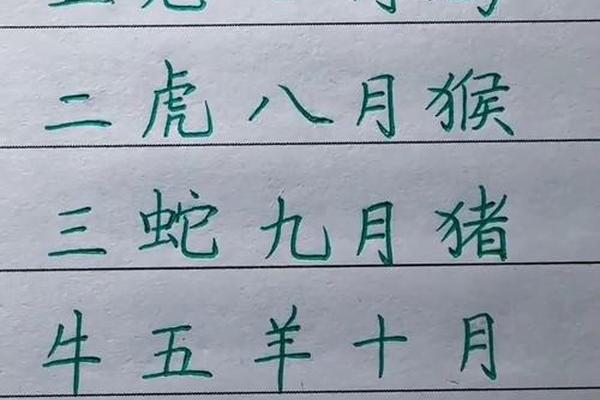 二虎八月猴
三蛇九月猪
牛五羊十月